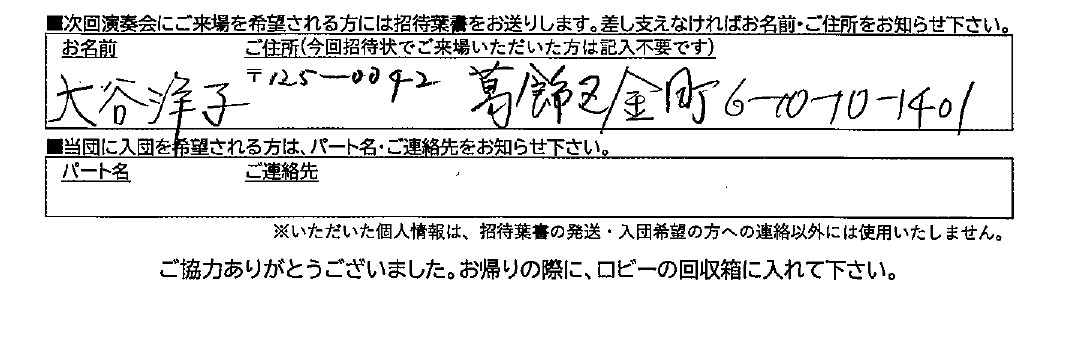 ■次回演奏会にご来場を希望される方には招待葉書をお送りします。差し支えなければお名前・ご住所をお知らせ下さい。
お名前 ご住所(今回招待状でご来場いただいた方は記入不要です)
大谷洋子 〒125-0042 葛飾区金町6-10-10-1401
■当団に入団を希望される方は、パート名・ご連絡先をお知らせ下さい。
パート名 ご連絡先
※いただいた個人情報は、招待葉書の発送・入団希望の方への連絡以外には使用いたしません。
ご協力ありがとうございました。お帰りの際に、ロビーの回収箱に入れて下さい。